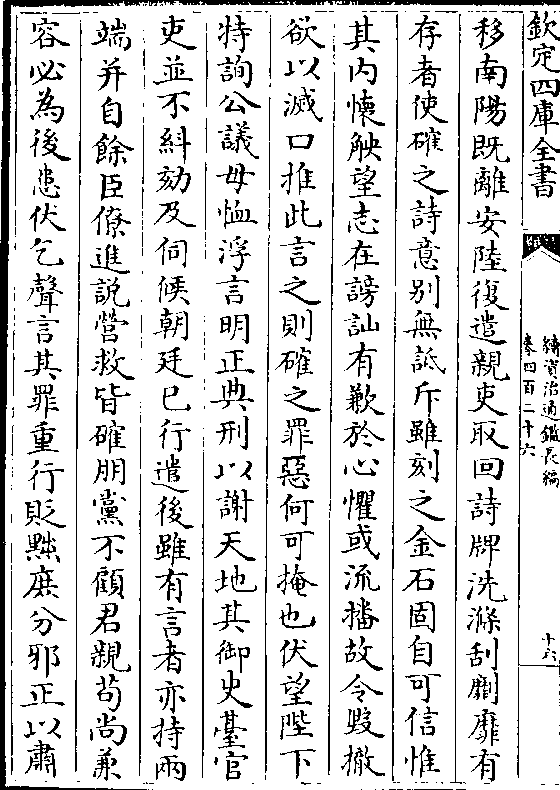 欽定四庫全書
續資治通鑑長編
卷四百二十六
十六
移南陽既離安陸復遣親吏取回詩牌洗滌刮劘靡有
存者使確之詩意别無詆斥雖刻之金石固自可信惟
其内懷觖望志在謗訕有歉於心懼或流播故令毀撤
欲以滅口推此言之則確之罪惡何可掩也伏望陛下
特詢公議毋恤浮言明正典刑以謝天地其御史臺官
吏並不糾劾及伺候朝廷已行遣後雖有言者亦持兩
端并自餘臣僚進説營救皆確朋黨不顧君親苟尚兼
容必為後患伏乞聲言其罪重行貶黜庶分邪正以肅